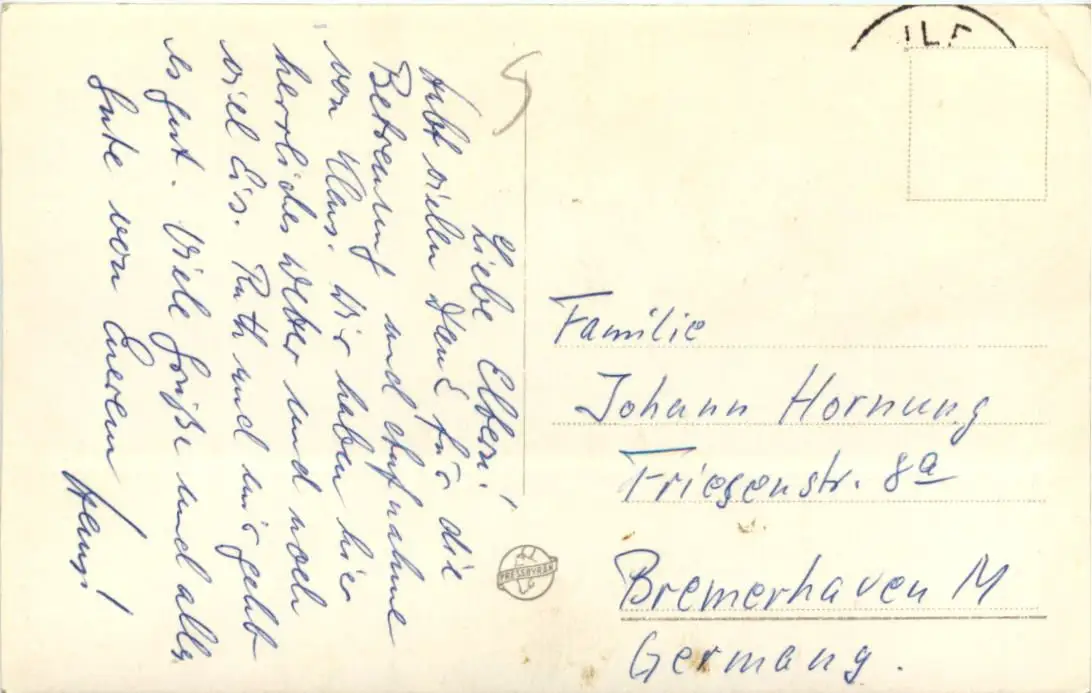 Liebe Eltern!
Habt vielen Dank für die
Betreuung und Aufnahme
von Klaus. Wir haben hier
herrliches Wetter und noch
viel Eis. Ruth und mir geht
es gut. Viele Grüße und alles
Gute von Eurem
Familie
Johann Hornung
Friesenstr. 8a
Bremerhaven M
Germany.
PRESSBYRÅN
5